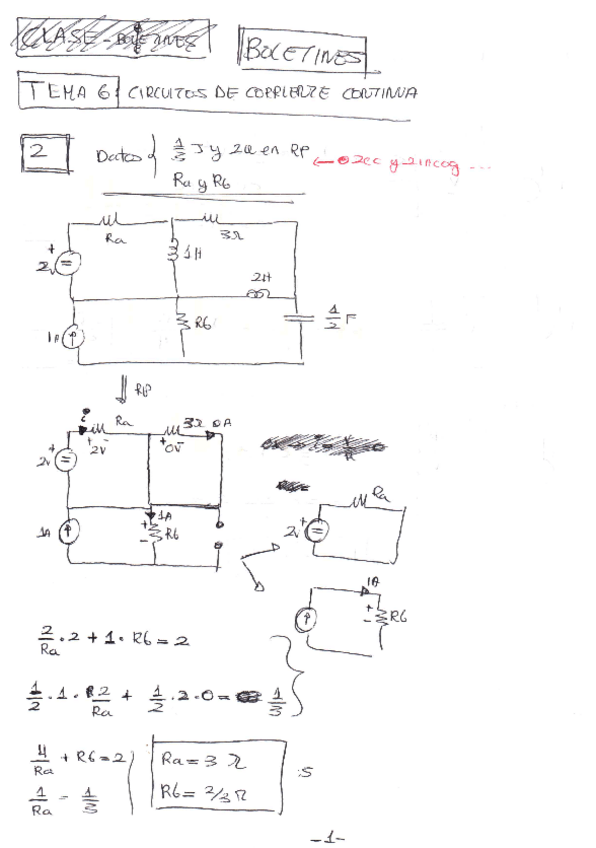 CLASE - BOLETINES
BOLETINES
TEMA 6 CIRCUITOS DE CORRIENTE CONTINUA
2 Datos { 1/3 J y 2W en RP
Ra y R6
← 2ec y 2incog ...
Ra 3Ω
2v 1H
2H
1A R6 1/2 F
⇓ RP
i Ra 3Ω 0A
2v + 2v - + 0v -
1A 1A R6
Ra
2v
1A
R6
2/Ra · 2 + 1 · R6 = 2
1/2 · 1 · 2/Ra + 1/2 · 2 · 0 = 1/3
4/Ra + R6 = 2
1/Ra = 1/3
Ra = 3 Ω
R6 = 2/3 Ω
-1-